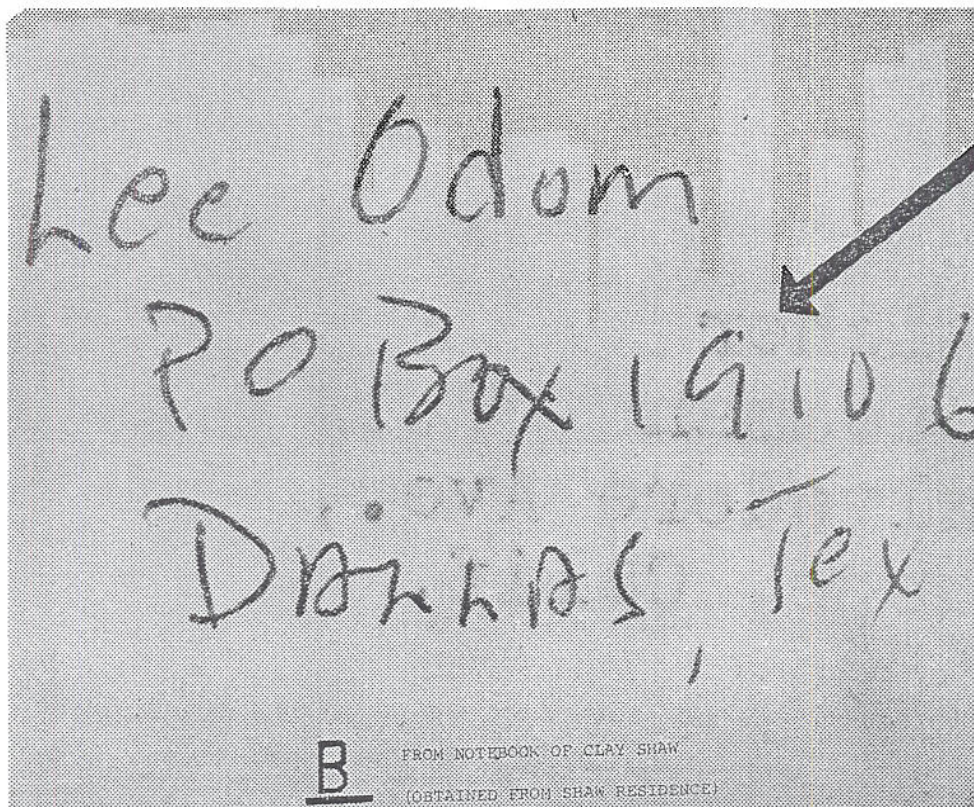 Lee Odom
PO Box 19106
DALLAS, Tex
B FROM NOTEBOOK OF CLAY SHAW
(OBTAINED FROM SHAW RESIDENCE)